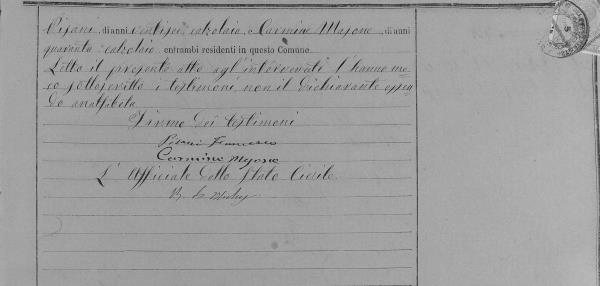 Pisani, di anni ventisei calzolaio e Carmine Majone, di anni
quaranta calzolaio, entrambi residenti in questo Comune.
Letto il presente atto agl'intervenuti l'hanno me
co sottoscritto i testimoni non il dichiarante essen
do analfabeta
Firma dei testimoni
Pisani Francesco
Carmine Majone
L'Uffiziale dello Stato Civile